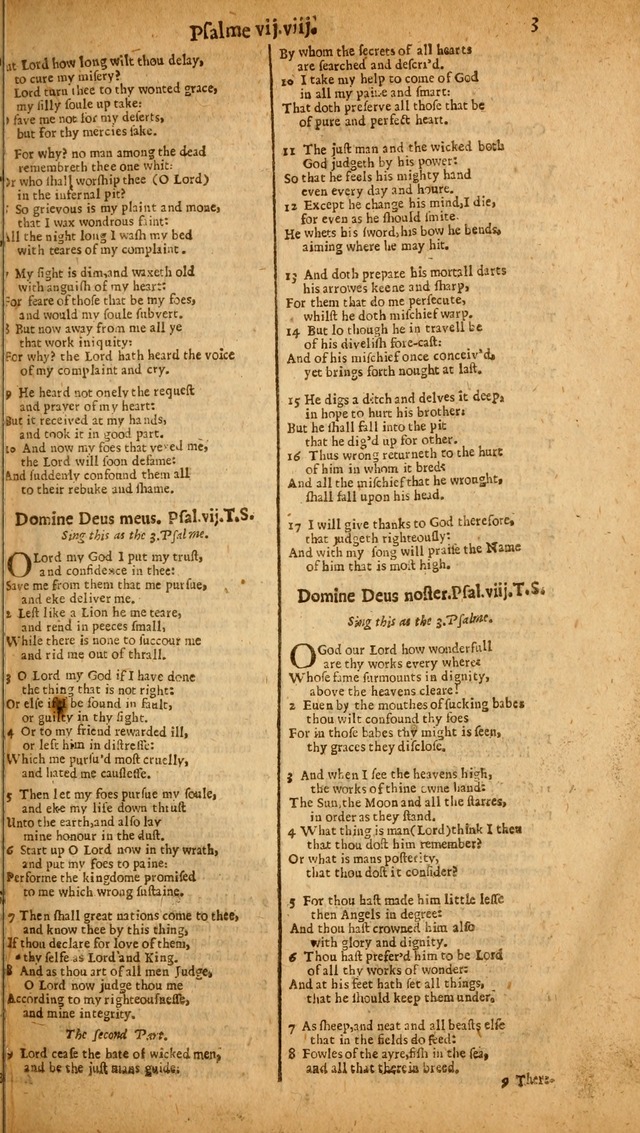 Pſalme vij.viij.
3
at Lord how long wilt thou delay,
to cure my miſery?
Lord turn thee to thy wonted grace,
my ſilly ſoule up take:
ſave me not for my deſerts,
but for thy mercies ſake.
For why? no man among the dead
remembreth thee one whit:
Or who ſhall worſhip thee (O Lord)
in the infernal pit?
So grievous is my plaint and mone,
that I wax wondrous faint:
All the night long I waſh my bed
with teares of my complaint.
My ſight is dim,and waxeth old
with anguiſh of my heart:
For feare of thoſe that be my foes,
and would my ſoule ſubvert.
8 But now away from me all ye
that work iniquity:
For why? the Lord hath heard the voice
of my complaint and cry.
9 He heard not onely the requeſt
and prayer of my heart:
But it received at my hands,
and took it in good part.
10 And now my foes that vexed me,
the Lord will ſoon defame:
And ſuddenly confound them all
to their rebuke and ſhame.
Domine Deus meus. Pſal.vij.T.S.
Sing this as the 3.Pſalme.
O Lord my God I put my truſt,
and confidence in thee:
Save me from them that me purſue,
and eke deliver me.
2 Leſt like a Lion he me teare,
and rend in peeces ſmall,
While there is none to ſuccour me
and rid me out of thrall.
3 O Lord my God if I have done
the thing that is not right:
Or elſe if I be found in fault,
or guilty in thy ſight.
4 Or to my friend rewarded ill,
or left him in diſtreſſe:
Which me purſu'd moſt cruelly,
and hated me cauſeleſſe.
5 Then let my foes purſue my ſoule,
and eke my life down thruſt
Unto the earth,and alſo lay
mine honour in the duſt.
6 Start up O Lord now in thy wrath,
and put my foes to paine:
Performe the kingdome promiſed
to me which wrong ſuſtaine.
7 Then ſhall great nations come to thee,
and know thee by this thing,
If thou declare for love of them,
thy ſelfe as Lord and King.
8 And as thou art of all men Judge,
O Lord now judge thou me
According to my righteouſneſſe,
and mine integrity.
The ſecond Part.
9 Lord ceaſe the hate of wicked men,
and be the juſt mans guide:
By whom the ſecrets of all hearts
are ſearched and deſcri'd.
10 I take my help to come of God
in all my paine and ſmart:
That doth preſerve all thoſe that be
of pure and perfect heart.
11 The juſt man and the wicked both
God judgeth by his power:
So that he feels his mighty hand
even every day and houre.
12 Except he change his mind,I die,
for even as he ſhould ſmite
He whets his ſword,his bow he bends,
aiming where he may hit.
13 And doth prepare his mortall darts
his arrowes keene and ſharp,
For them that do me perſecute,
whilſt he doth miſchief warp.
14 But lo though he in travell be
of his diveliſh fore-caſt:
And of his miſchief once conceiv'd,
yet brings forth nought at laſt.
15 He digs a ditch and delves it deep,
in hope to hurt his brother:
But he ſhall fall into the pit
that he dig'd up for other.
16 Thus wrong returneth to the hurt
of him in whom it bred:
And all the miſchief that he wrought,
ſhall fall upon his head.
17 I will give thanks to God therefore,
that judgeth righteouſly:
And with my ſong will praiſe the Name
of him that is moſt high.
Domine Deus noſter.Pſal.viij.T.S.
Sing this as the 3.Pſalme.
O God our Lord how wonderfull
are thy works every where:
Whoſe fame ſurmounts in dignity,
above the heavens cleare!
2 Even by the mouthes of ſucking babes
thou wilt confound thy foes
For in thoſe babes thy might is ſeen,
thy graces they diſcloſe.
3 And when I ſee the heavens high,
the works of thine owne hand:
The Sun,the Moon and all the ſtarres,
in order as they ſtand.
4 What thing is man(Lord)think I then
that thou doſt him remember?
Or what is mans poſterity,
that thou doſt it conſider?
5 For thou haſt made him little leſſe
then Angels in degree:
And thou haſt crowned him alſo
with glory and dignity.
6 Thou haſt prefer'd him to be Lord
of all thy works of wonder:
And at his feet hath ſet all things,
that he ſhould keep them under.
7 As ſheep,and neat and all beaſts elſe
that in the fields do feed:
8 Fowles of the ayre,fiſh in the ſea,
and all that therein breed.
9 There-